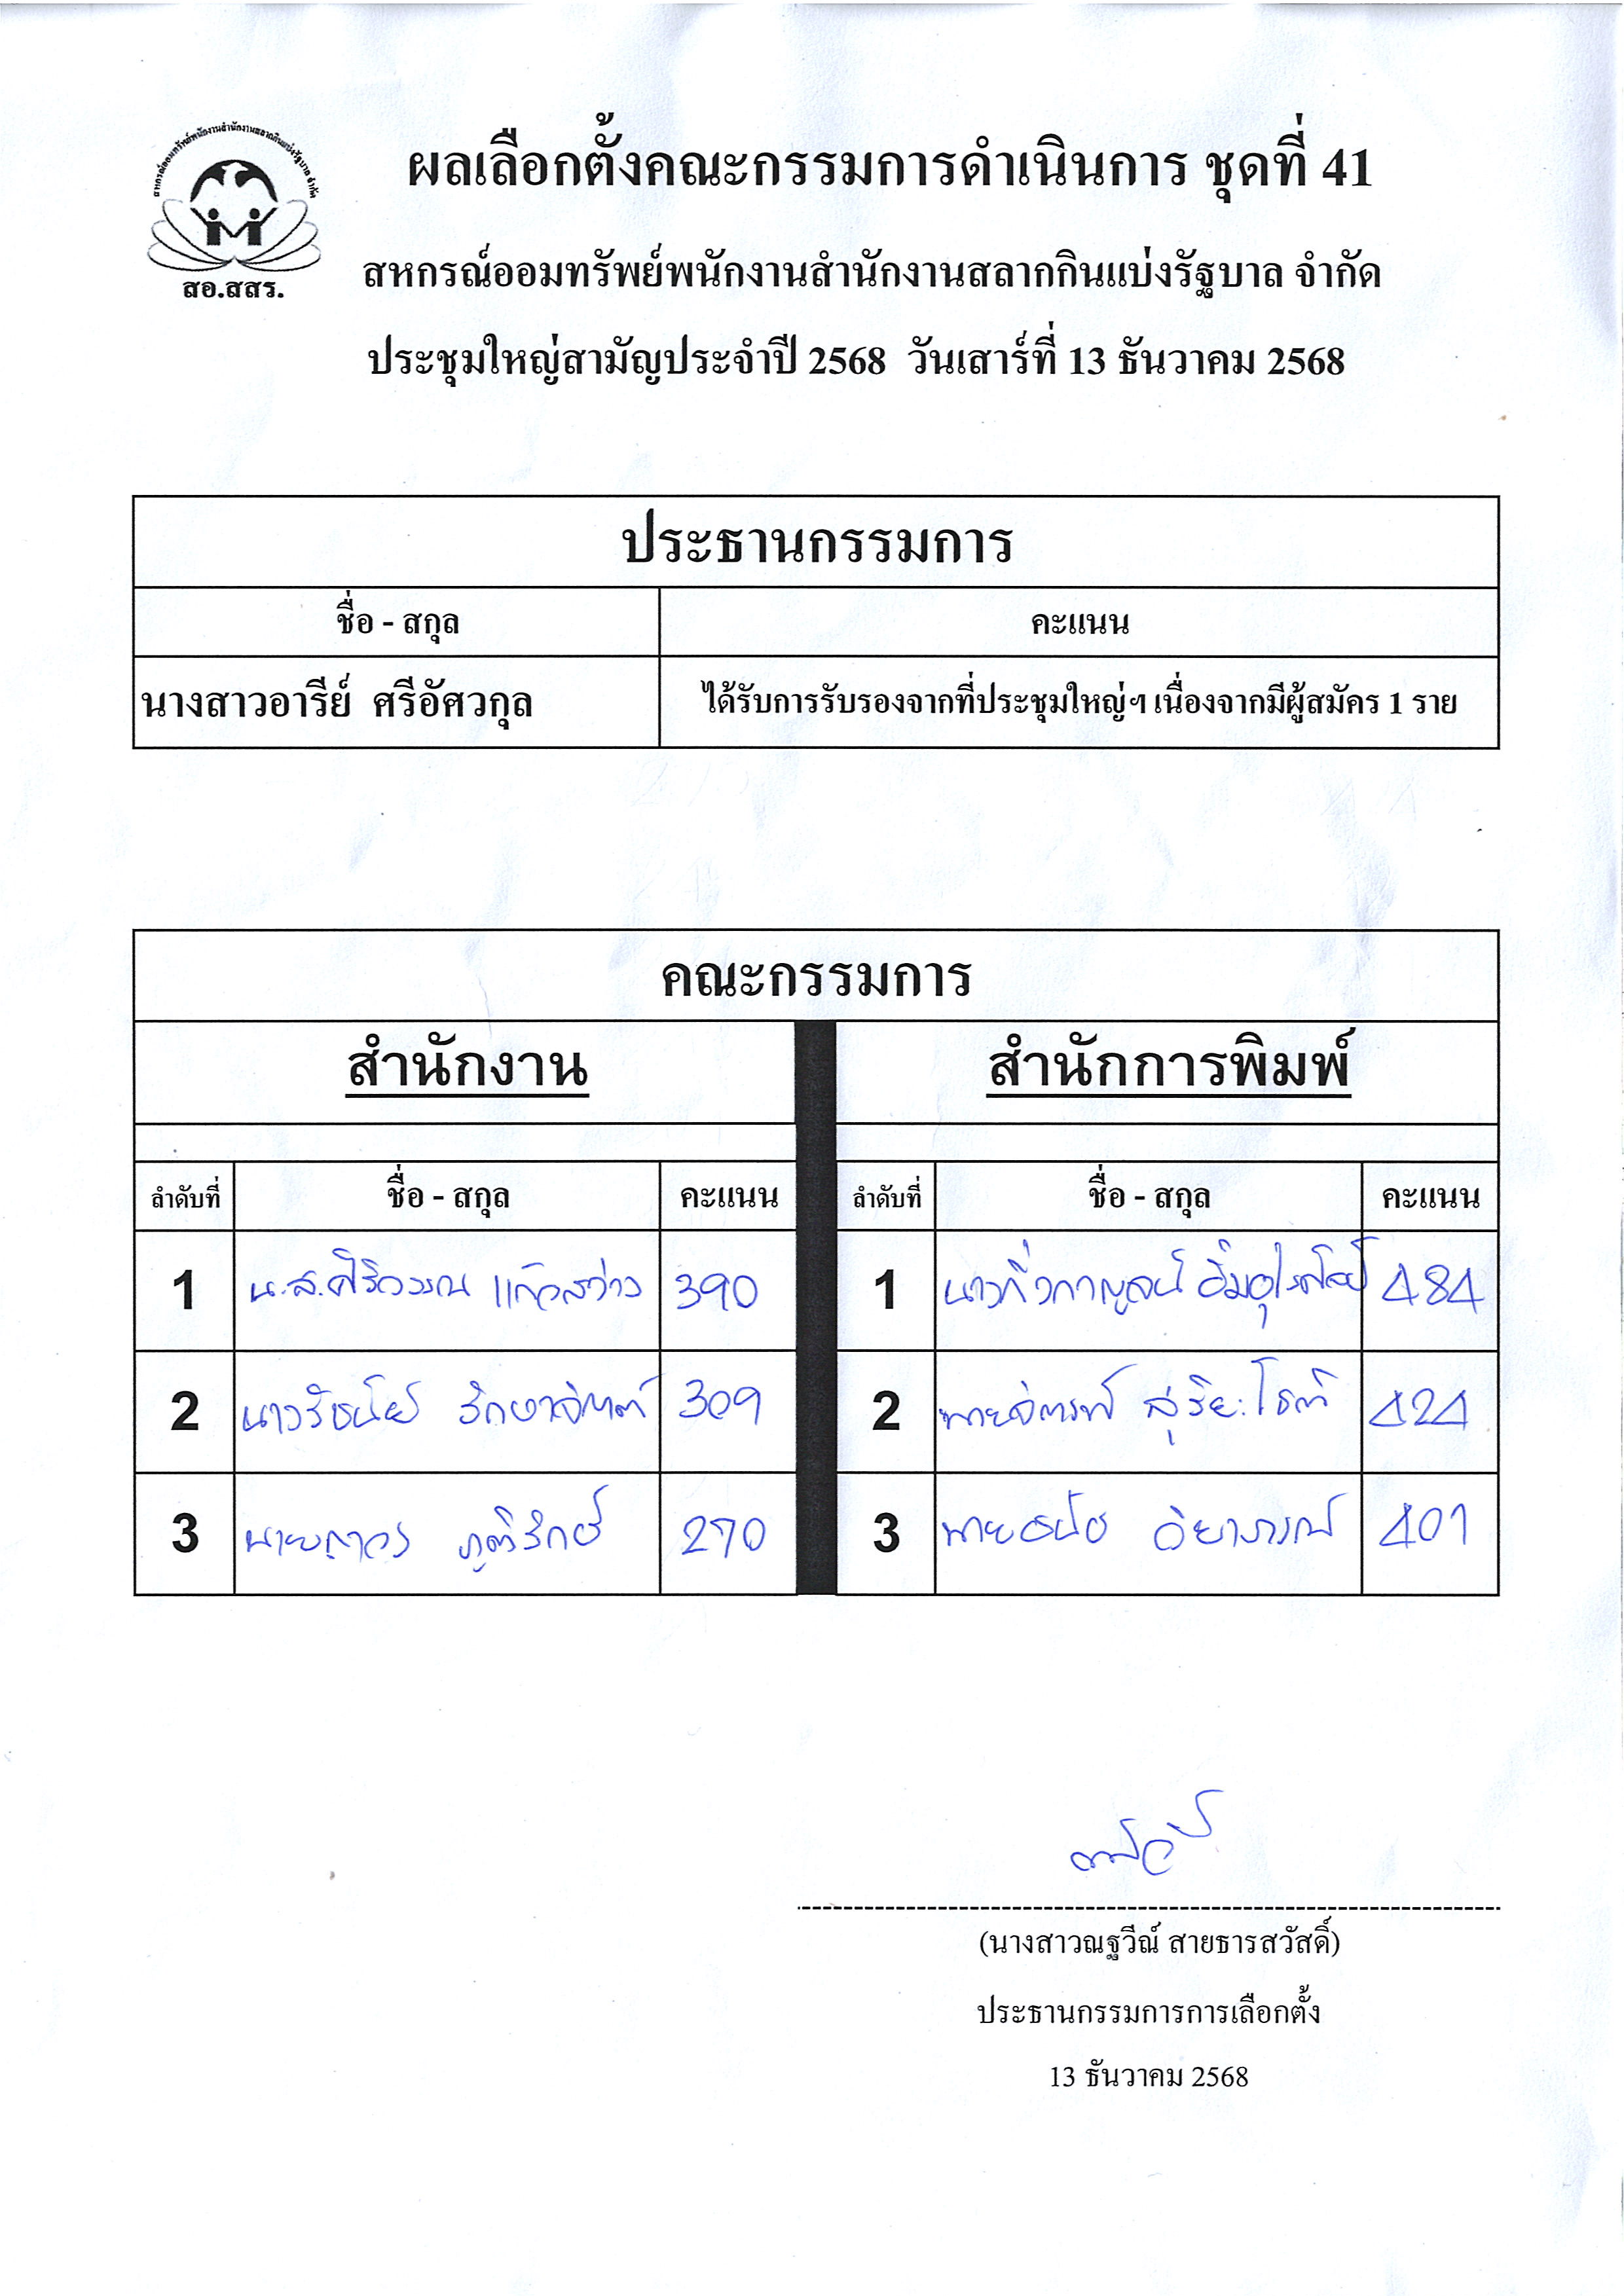 สหกรณ์ออมทรัพย์พนักงานสำนักงานสลากกินแบ่งรัฐบาล จำกัด
สอ.สสร.
ผลเลือกตั้งคณะกรรมการดำเนินการ ชุดที่ 41
สหกรณ์ออมทรัพย์พนักงานสำนักงานสลากกินแบ่งรัฐบาล จำกัด
ประชุมใหญ่สามัญประจำปี 2568 วันเสาร์ที่ 13 ธันวาคม 2568
ประธานกรรมการ
ชื่อ - สกุล คะแนน
นางสาวอารีย์ ศรีอัศวกุล ได้รับการรับรองจากที่ประชุมใหญ่ฯ เนื่องจากมีผู้สมัคร 1 ราย
คณะกรรมการ
สำนักงาน สำนักการพิมพ์
ลำดับที่ ชื่อ - สกุล คะแนน ลำดับที่ ชื่อ - สกุล คะแนน
1 น.ส.ศิริวรรณ แก้วสว่าง 390 1 484
2 309 2 สุริยะโชติ 424
3 นายถาวร ภูติรักษ์ 270 3 401
(นางสาวณฐวีณ์ สายธารสวัสดิ์)
ประธานกรรมการการเลือกตั้ง
13 ธันวาคม 2568